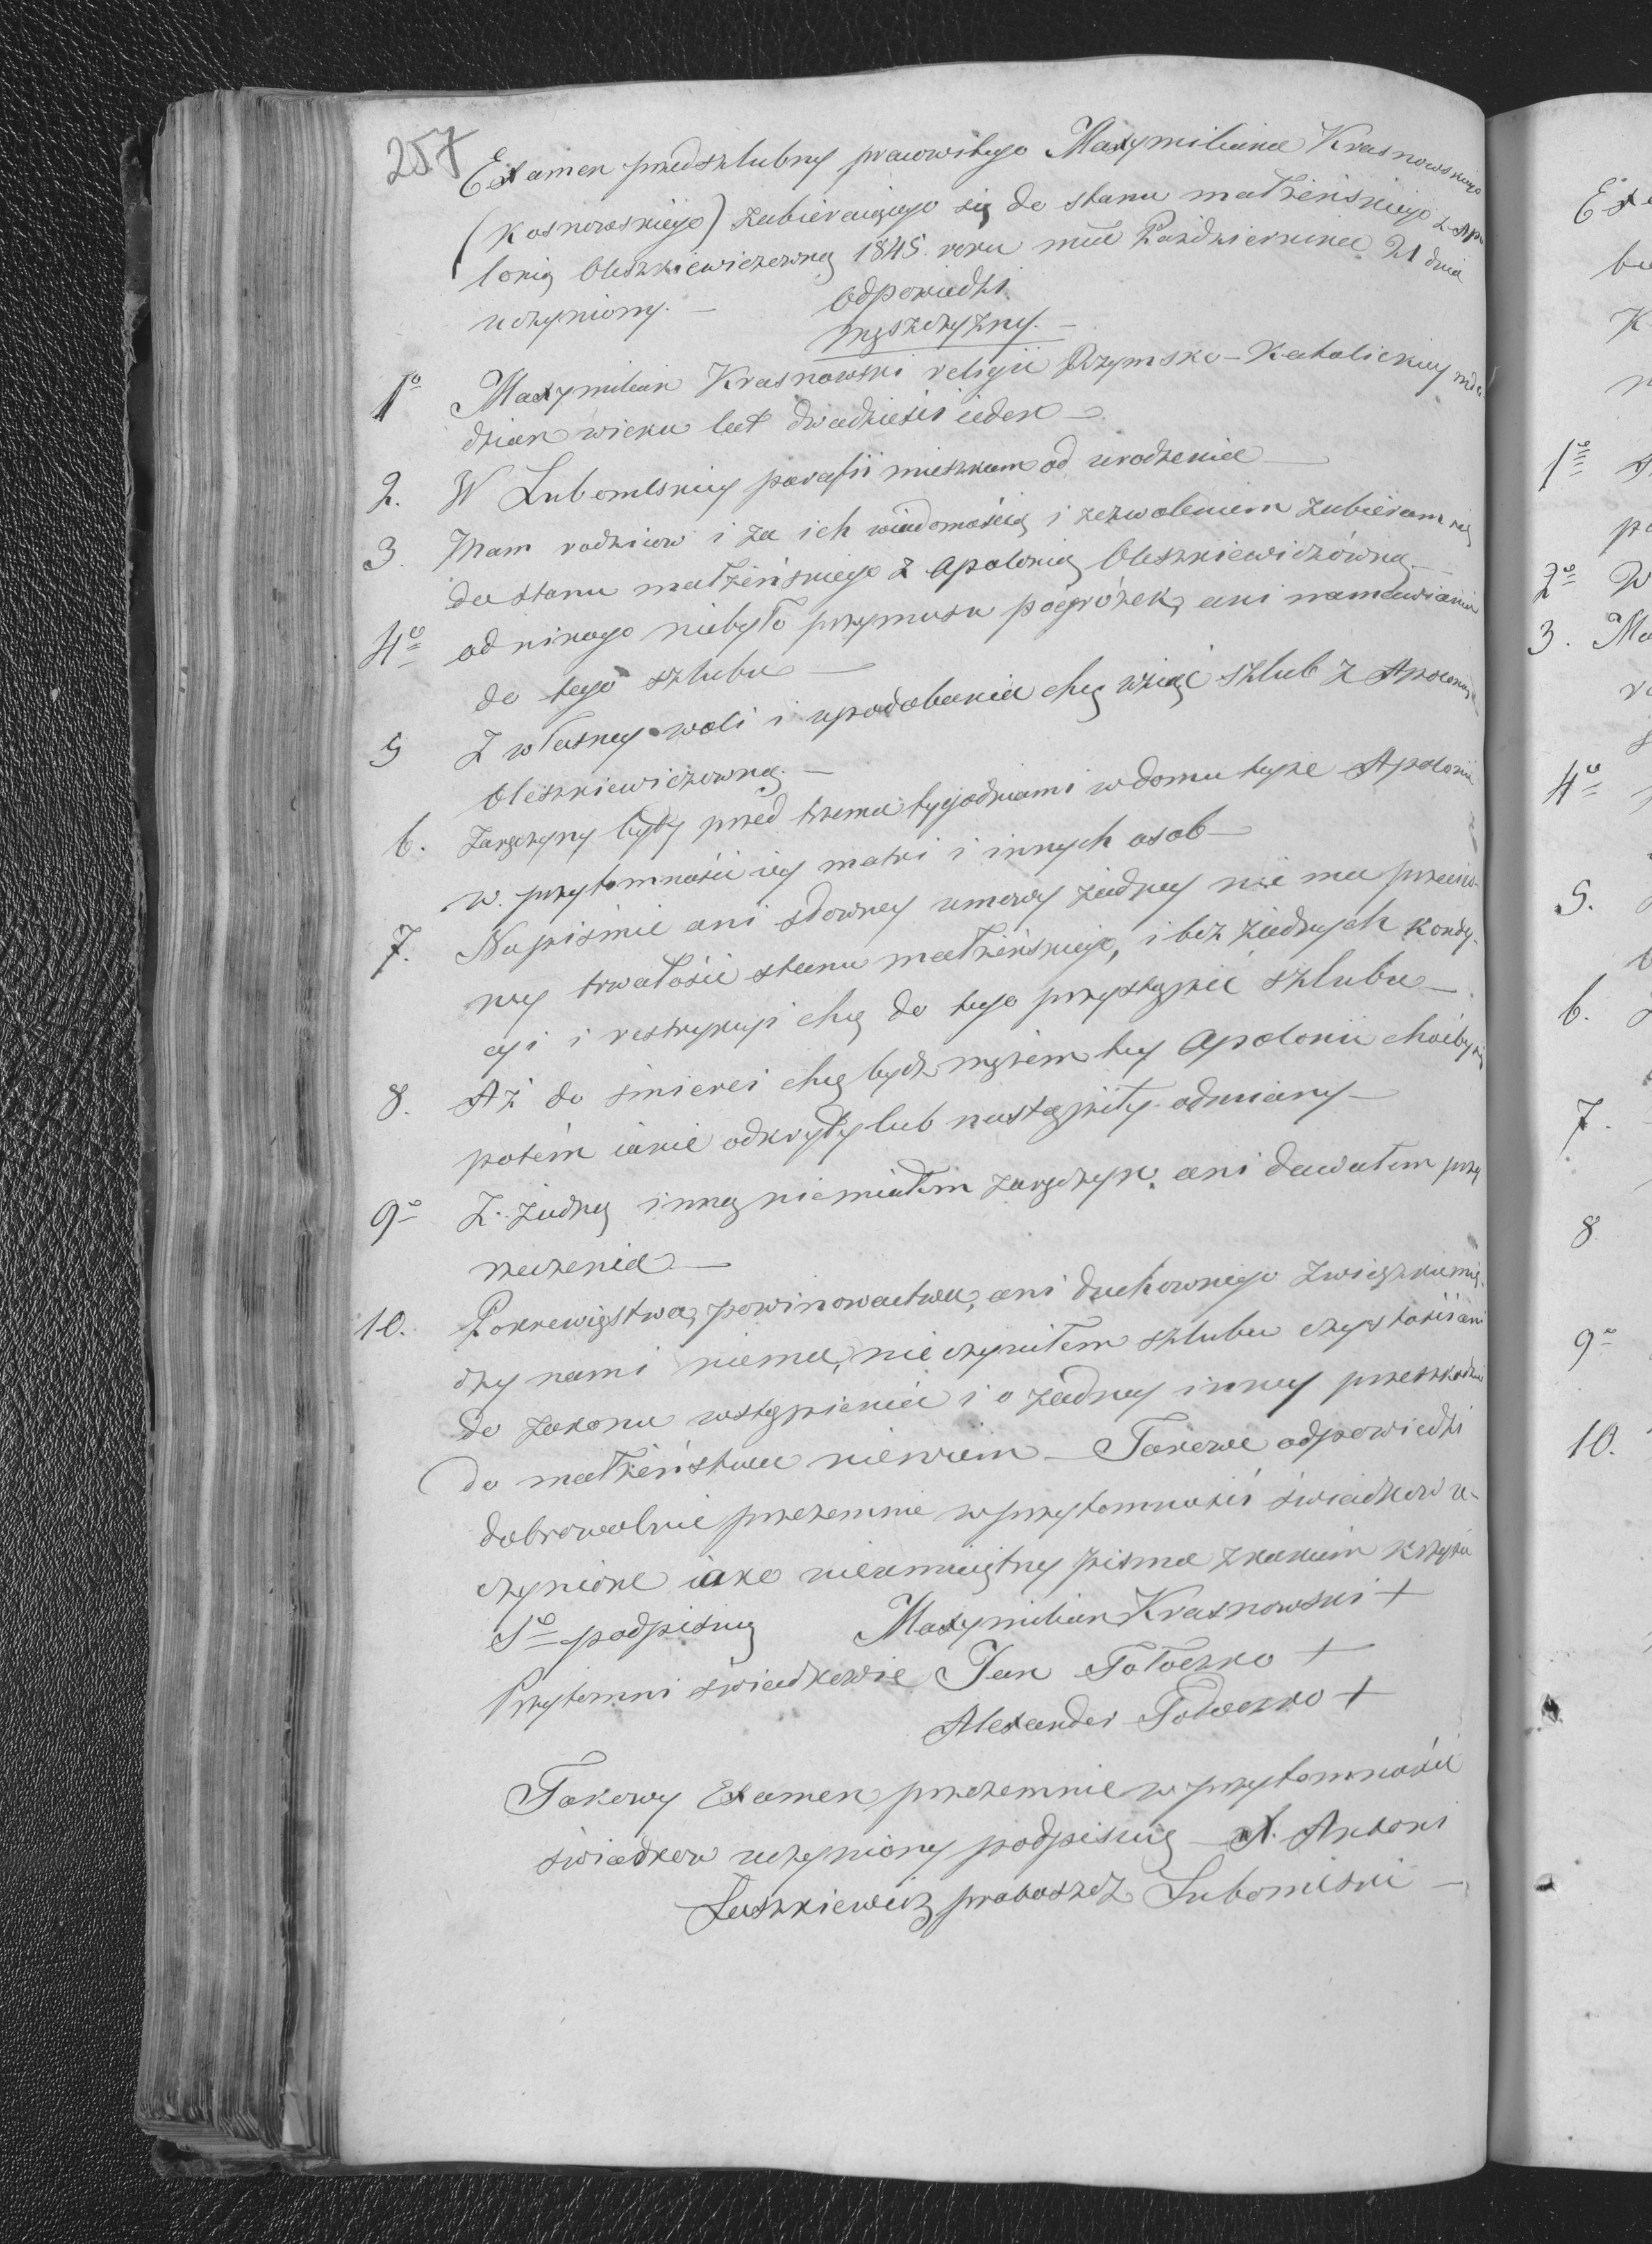 257
Examen przedszlubny pracowitego Maxymiliana Krasnowskiego
(Kosnowskiego) zabieraiącego się do stanu małżeńskiego z Apo
lonią Oleszkiewiczewną 1845. roku mca Pazdziernika 21 dnia
uczyniony. — Odpowiedzi
męszczyzny. —
1o Maxymilian Krasnowski religii Rzymsko-Katolickiey mło
dzian wieku lat dwadzieści ieden —
2. W Lubomlskiey parafii mieszkam od urodzenia —
3. Mam rodzicow i za ich wiadomością i zezwoleniem zabieram się
do stanu małżeńskiego z Apolonią Oleszkiewiczówną —
4o od nikogo niebyło przymusu pogróżek, ani namawiania
do tego szlubu —
5 Z własney woli i upodobania chcę wziąć szlub z Apolonią
Oleszkiewiczewną. —
6. Zaręczyny były przed trzema tygodniami w domu teyże Apolonii
w przytomności iey matki i innych osob —
7. Na piśmie ani słowney umowy żadney nie ma przeciw-
ney trwałości stanu małżeńskiego, i bez żadnych kondy-
cyi i restrykcyi chcę do tego przystąpić szlubu —
8. Aż do śmierci chcę bydź mężem tey Apolonii choćby się
potém iakie odkryły lub nastąpiły odmiany —
9o Z żadną inną niemiałem zaręczyn, ani dawałem przy
rzeczenia —
10. Pokrewięstwa, powinowactwa, ani duchownego związku mię-
dzy nami niema, nie czyniłem szlubu czystości ani
do zakonu wstąpienia i o żadney inney przeszkodzie
do małżeństwa niewiem — Takowe odpowiedzi
dobrowolnie przezemnie w przytomności świadkow u-
czynione iako nieumieiętny pisma znakiem krzyża
So podpisuię Maxymilian Krasnowski +
Przytomni świadkowie Jan Tołoczko +
Alexander Tołoczko +
Takowy Examen przezemnie w przytomności
świadkow uczyniony podpisuię — X. Antoni
Łaszkiewicz proboszcz Lubomlski —
Exa
K
1o
2o W
3. Ma
4o
5.
6.
7.
8
9o
10.